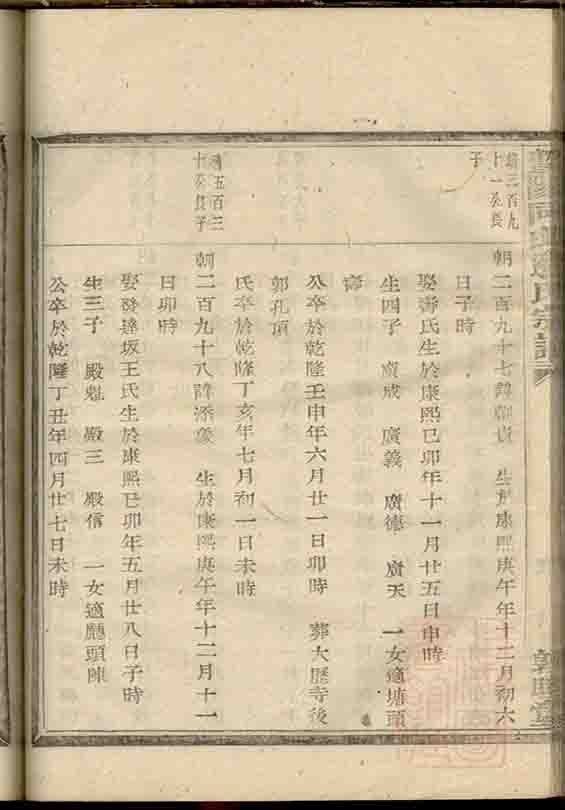 靖三百九
十一癸長
子
朝二百九十七諱朝貴 生於康熙庚午年十二月初六
日子時
娶壽氏生於康熙己卯年十一月廿五日申時
生四子 廣成 廣義 廣德 廣天 一女適塘頭
壽
公卒於乾隆壬申年六月廿一日卯時 葬大歷寺後
郭孔項
氏卒於乾隆丁亥年七月初一日未時
靖五百三
十癸長子
朝二百九十八諱添 生於康熙庚午年十二月十一
日卯時
娶發達坂王氏生於康熙己卯年五月廿八日子時
生三子 殿魁 殿三 殿信 一女適廳頭陳
公卒於乾隆丁丑年四月廿七日未時